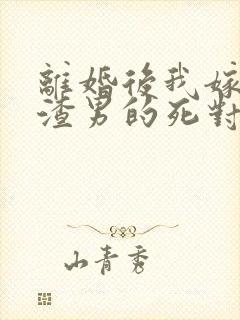 離婚後我嫁
渣男的死對
山青秀